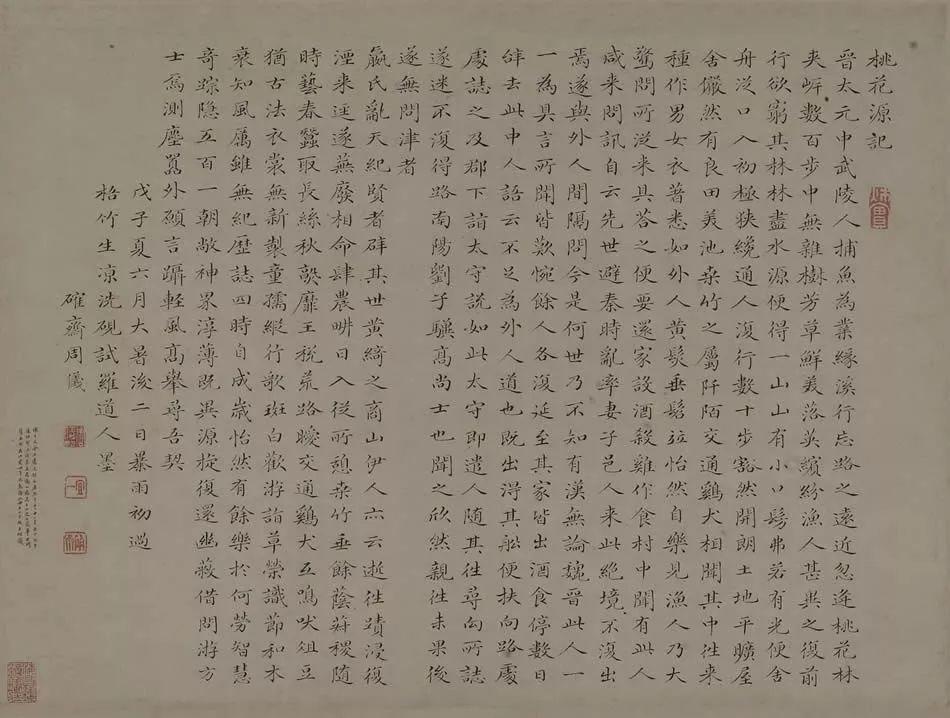 桃花源記
晉太元中武陵人捕魚為業緣溪行忘路之遠近忽逢桃花林
夾岸數百步中無雜樹芳草鮮美落英繽紛漁人甚異之復前
行欲窮其林林盡水源便得一山山有小口髣弗若有光便舍
舟從口入初極狹纔通人復行數十步豁然開朗土地平曠屋
舍儼然有良田美池桑竹之屬阡陌交通鷄犬相聞其中往來
種作男女衣著悉如外人黃髮垂髫並怡然自樂見漁人乃大
驚問所從來具答之便要還家設酒殺雞作食村中聞有此人
咸來問訊自云先世避秦時亂率妻子邑人來此絕境不復出
焉遂與外人間隔問今是何世乃不知有漢無論魏晉此人一
一為具言所聞皆歎惋餘人各復延至其家皆出酒食停數日
辭去此中人語云不足為外人道也既出得其船便扶向路處
處誌之及郡下詣太守說如此太守即遣人隨其往尋向所誌
遂迷不復得路南陽劉子驥高尚士也聞之欣然親往未果後
遂無問津者
嬴氏亂天紀賢者辟其世黃綺之商山伊人亦云逝往蹟浸復
湮來逕遂蕪廢相命肆農畊日入從所憩桑竹垂餘蔭菽稷隨
時藝春蠶取長絲秋熟靡王稅荒路曖交通鷄犬互鳴吠俎豆
猶古法衣裳無新製童孺縱行歌斑白歡游詣草榮識節和木
衰知風厲雖無紀歷誌四時自成歲怡然有餘樂於何勞智慧
奇踪隱五百一朝敞神界淳薄既異源旋復還幽蔽借問游方
士焉測塵囂外願言躡輕風高舉尋吾契
戊子夏六月大暑後二日暴雨初過
格竹生凉洗硯試雒道人墨
確齋周儀